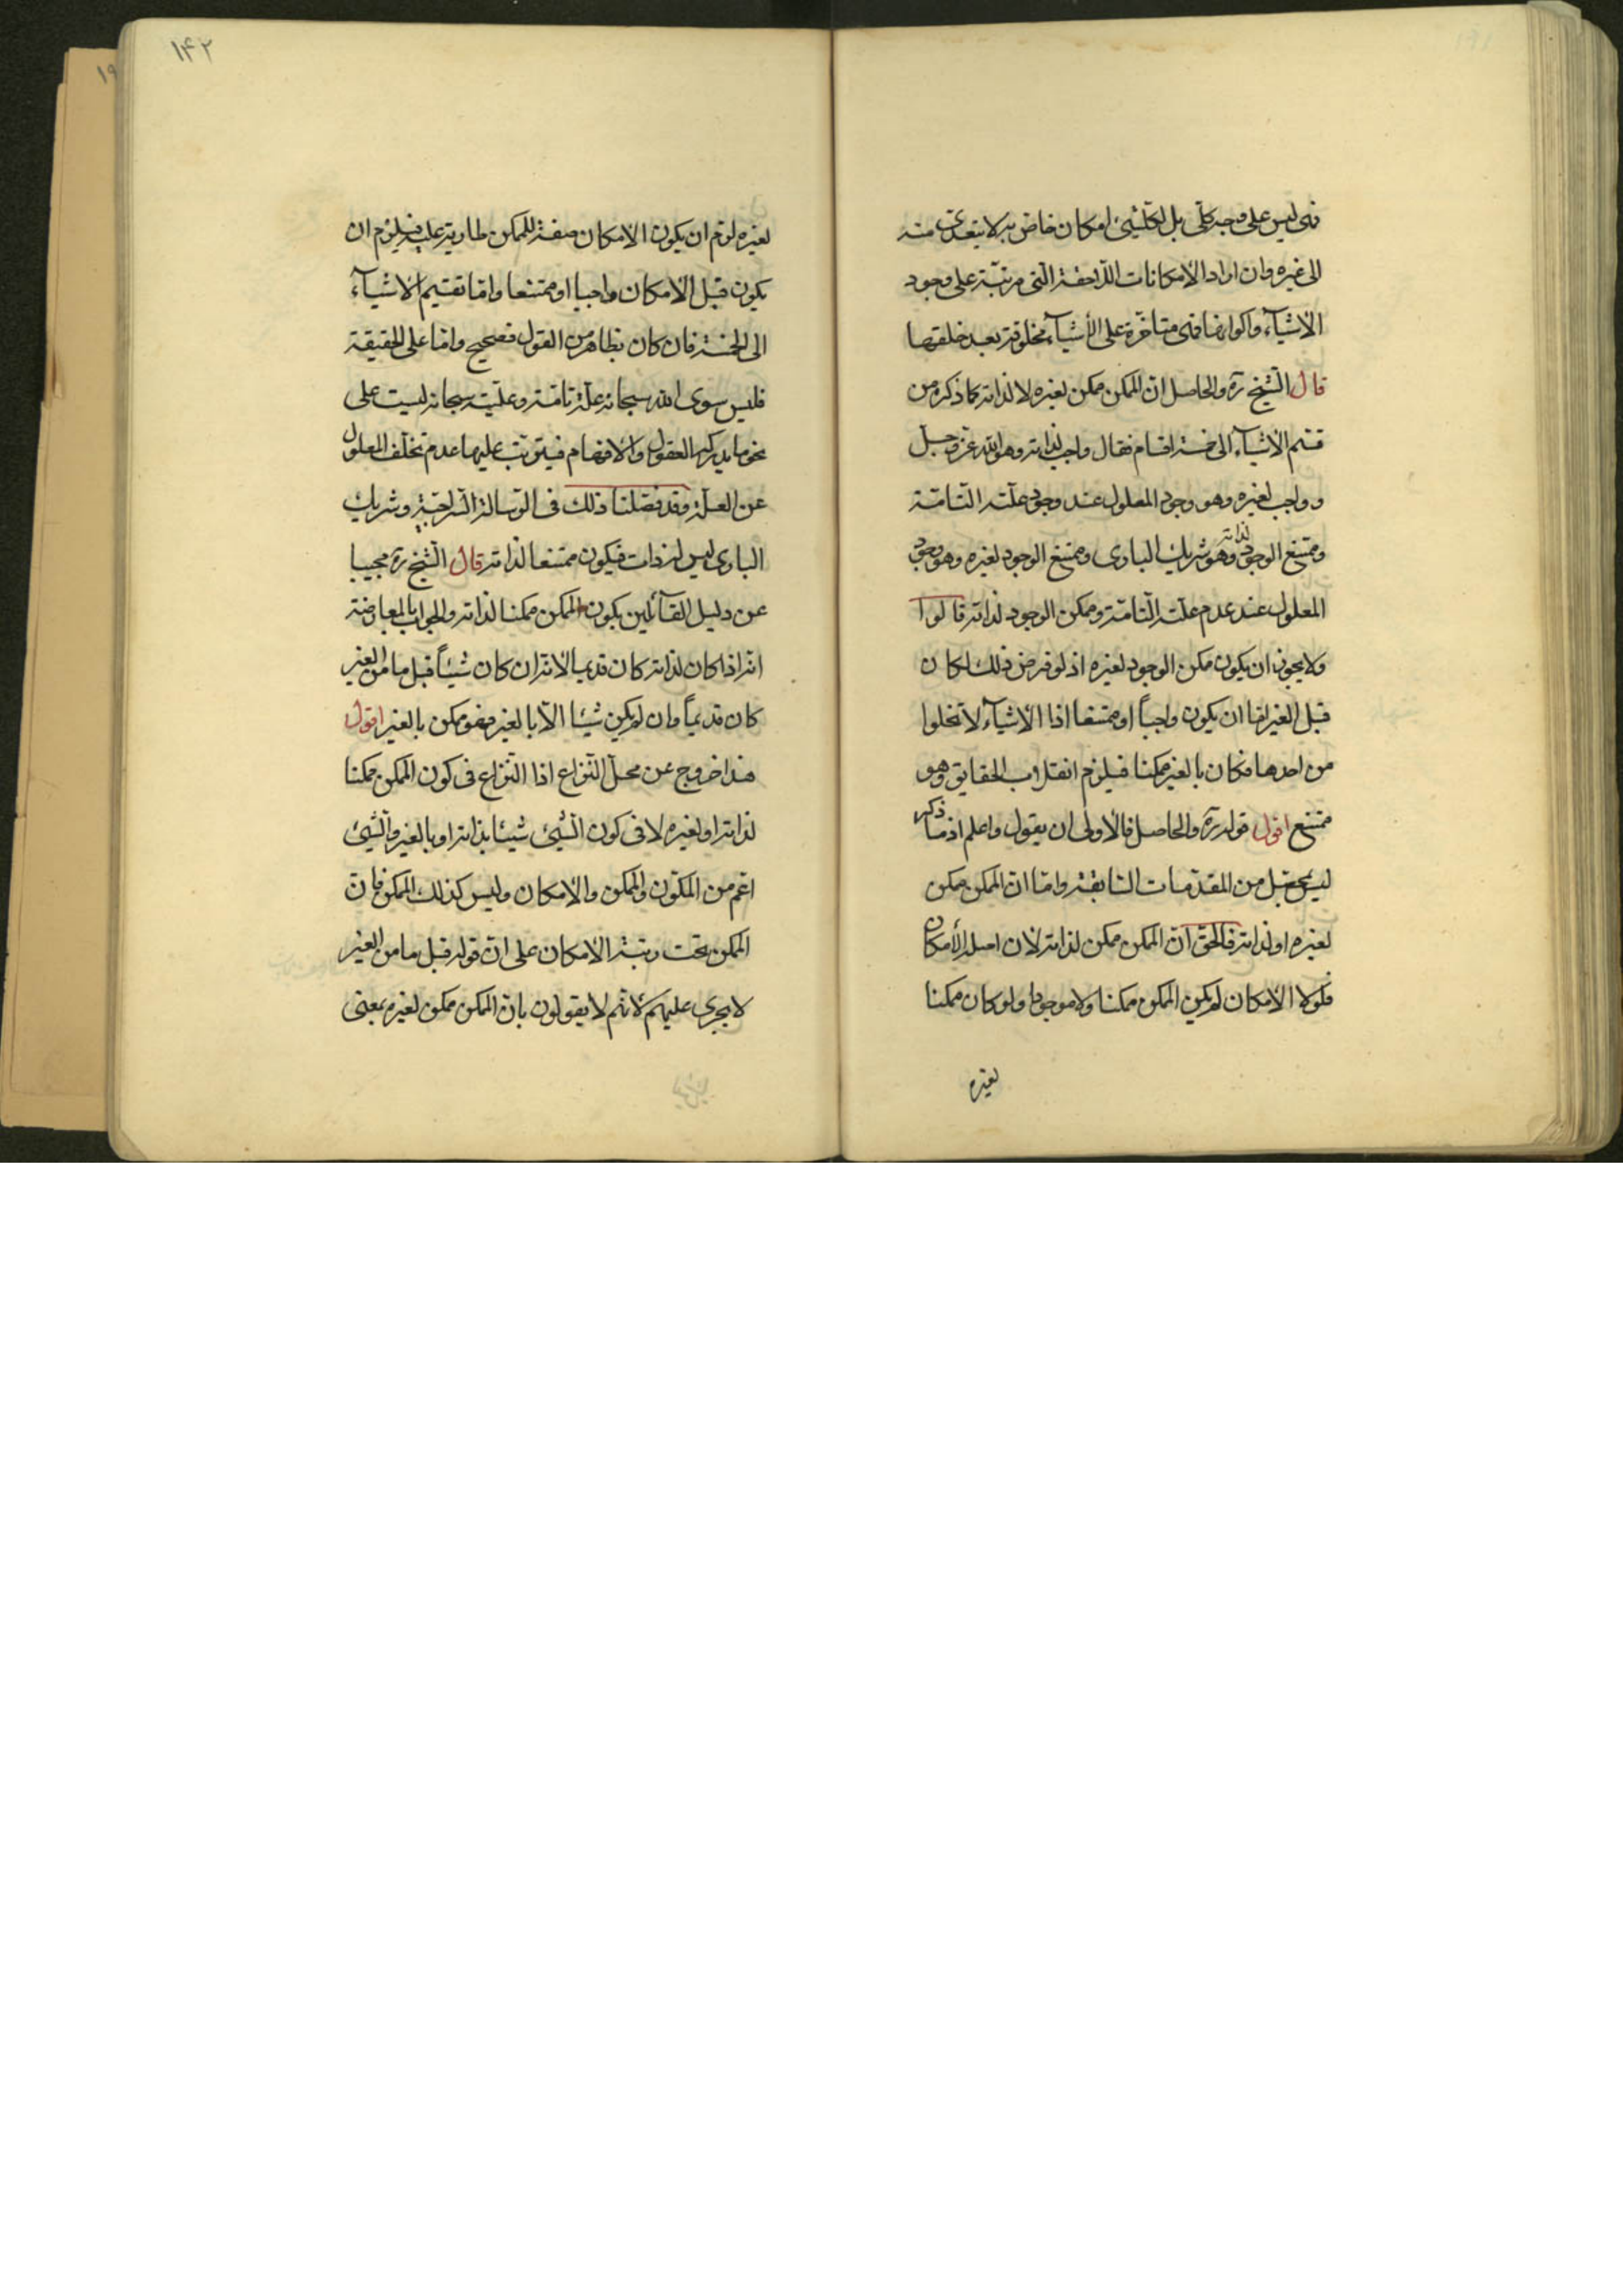 فهی لیس علی وجه کلّی بل لکلّشیٔ امکان خاصّ به لا یتعدّی منه
الی غیره وان اراد الأمکانات اللّاحقة الّتی مرتّبة علی وجود
الأشیآء واکوانها فهی متاخّرة علی الأشیآء مخلوقة بعد خلقها
قال الشّیخ ره والحاصل انّ الممکن ممکن لغیره لا لذاته کما ذکره من
قسّم الأشیآء الی خمسة اقسام فقال واجب لذاته وهو الله عزّ وجلّ
وواجب لغیره وهو وجود المعلول عند وجود علّته التّامّة
وممتنع الوجود لذاته وهو شریك الباری وممتنع الوجود لغیره وهو وجود
المعلول عند عدم علّته التّامّة وممکن الوجود لذاته قالوا
ولا یجوز ان یکون ممکن الوجود لغیره اذ لو فرض ذلك لکان
قبل الغیر امّا ان یکون واجباً او ممتنعا اذا الأشیآء لا تخلوا
من احدها فکان بالغیر ممکنا فیلزم انقلاب الحقایق وهو
ممتنع اقول قوله ره والحاصل فالأولی ان یقول واعلم اذ ما ذکره
لیس بحاصل من المقدّمات السّابقة وامّا انّ الممکن ممکن
لغیره او لذاته فالحقّ انّ الممکن ممکن لذاته لأن اصله الأمکان
فلولا الأمکان لم یکن الممکن ممکنا ولا موجودا ولو کان ممکنا
لغیره
۱۴۲
لغیره لزم ان یکون الأمکان صفة للممکن طاریة علیه فیلزم ان
یکون قبل الأمکان واجبا او ممتنعا وامّا تقسیم الأشیآء
الی الخمسة فان کان بظاهر من القول فصحیح وامّا علی الحقیقة
فلیس سوی الله سبحانه علّة تامّة وعلّیّته سبحانه لیست علی
نحو ما یدرکه العقول والأفهام فیترتّب علیها عدم تخلّف المعلول
عن العلّة وقد فصّلنا ذلك فی الرّسالة السّراجیّة وشریك
الباری لیس له ذات فیکون ممتنعا لذاته قال الشّیخ ره مجیبا
عن دلیل القآئلین بکون الممکن ممکنا لذاته والجواب بالمعارضة
انّه اذا کان لذاته کان قدیما لأنّه ان کان شیئاً قبل ما من الغیر
کان قدیماً وان لم یکن شیئا الّا بالغیر فهو ممکن بالغیر اقول
هذا خروج عن محلّ النّزاع اذا النّزاع فی کون الممکن ممکنا
لذاته او لغیره لا فی کون الشّیٔ شیئا بذاته او بالغیر والشّیٔ
اعمّ من المکوّن والممکن والأمکان ولیس کذلك الممکن فانّ
الممکن تحت رتبة الأمکان علی انّ قوله قبل ما من الغیر
لا یجری علیهم لأنّهم لا یقولون بانّ الممکن ممکن لغیره بمعنی